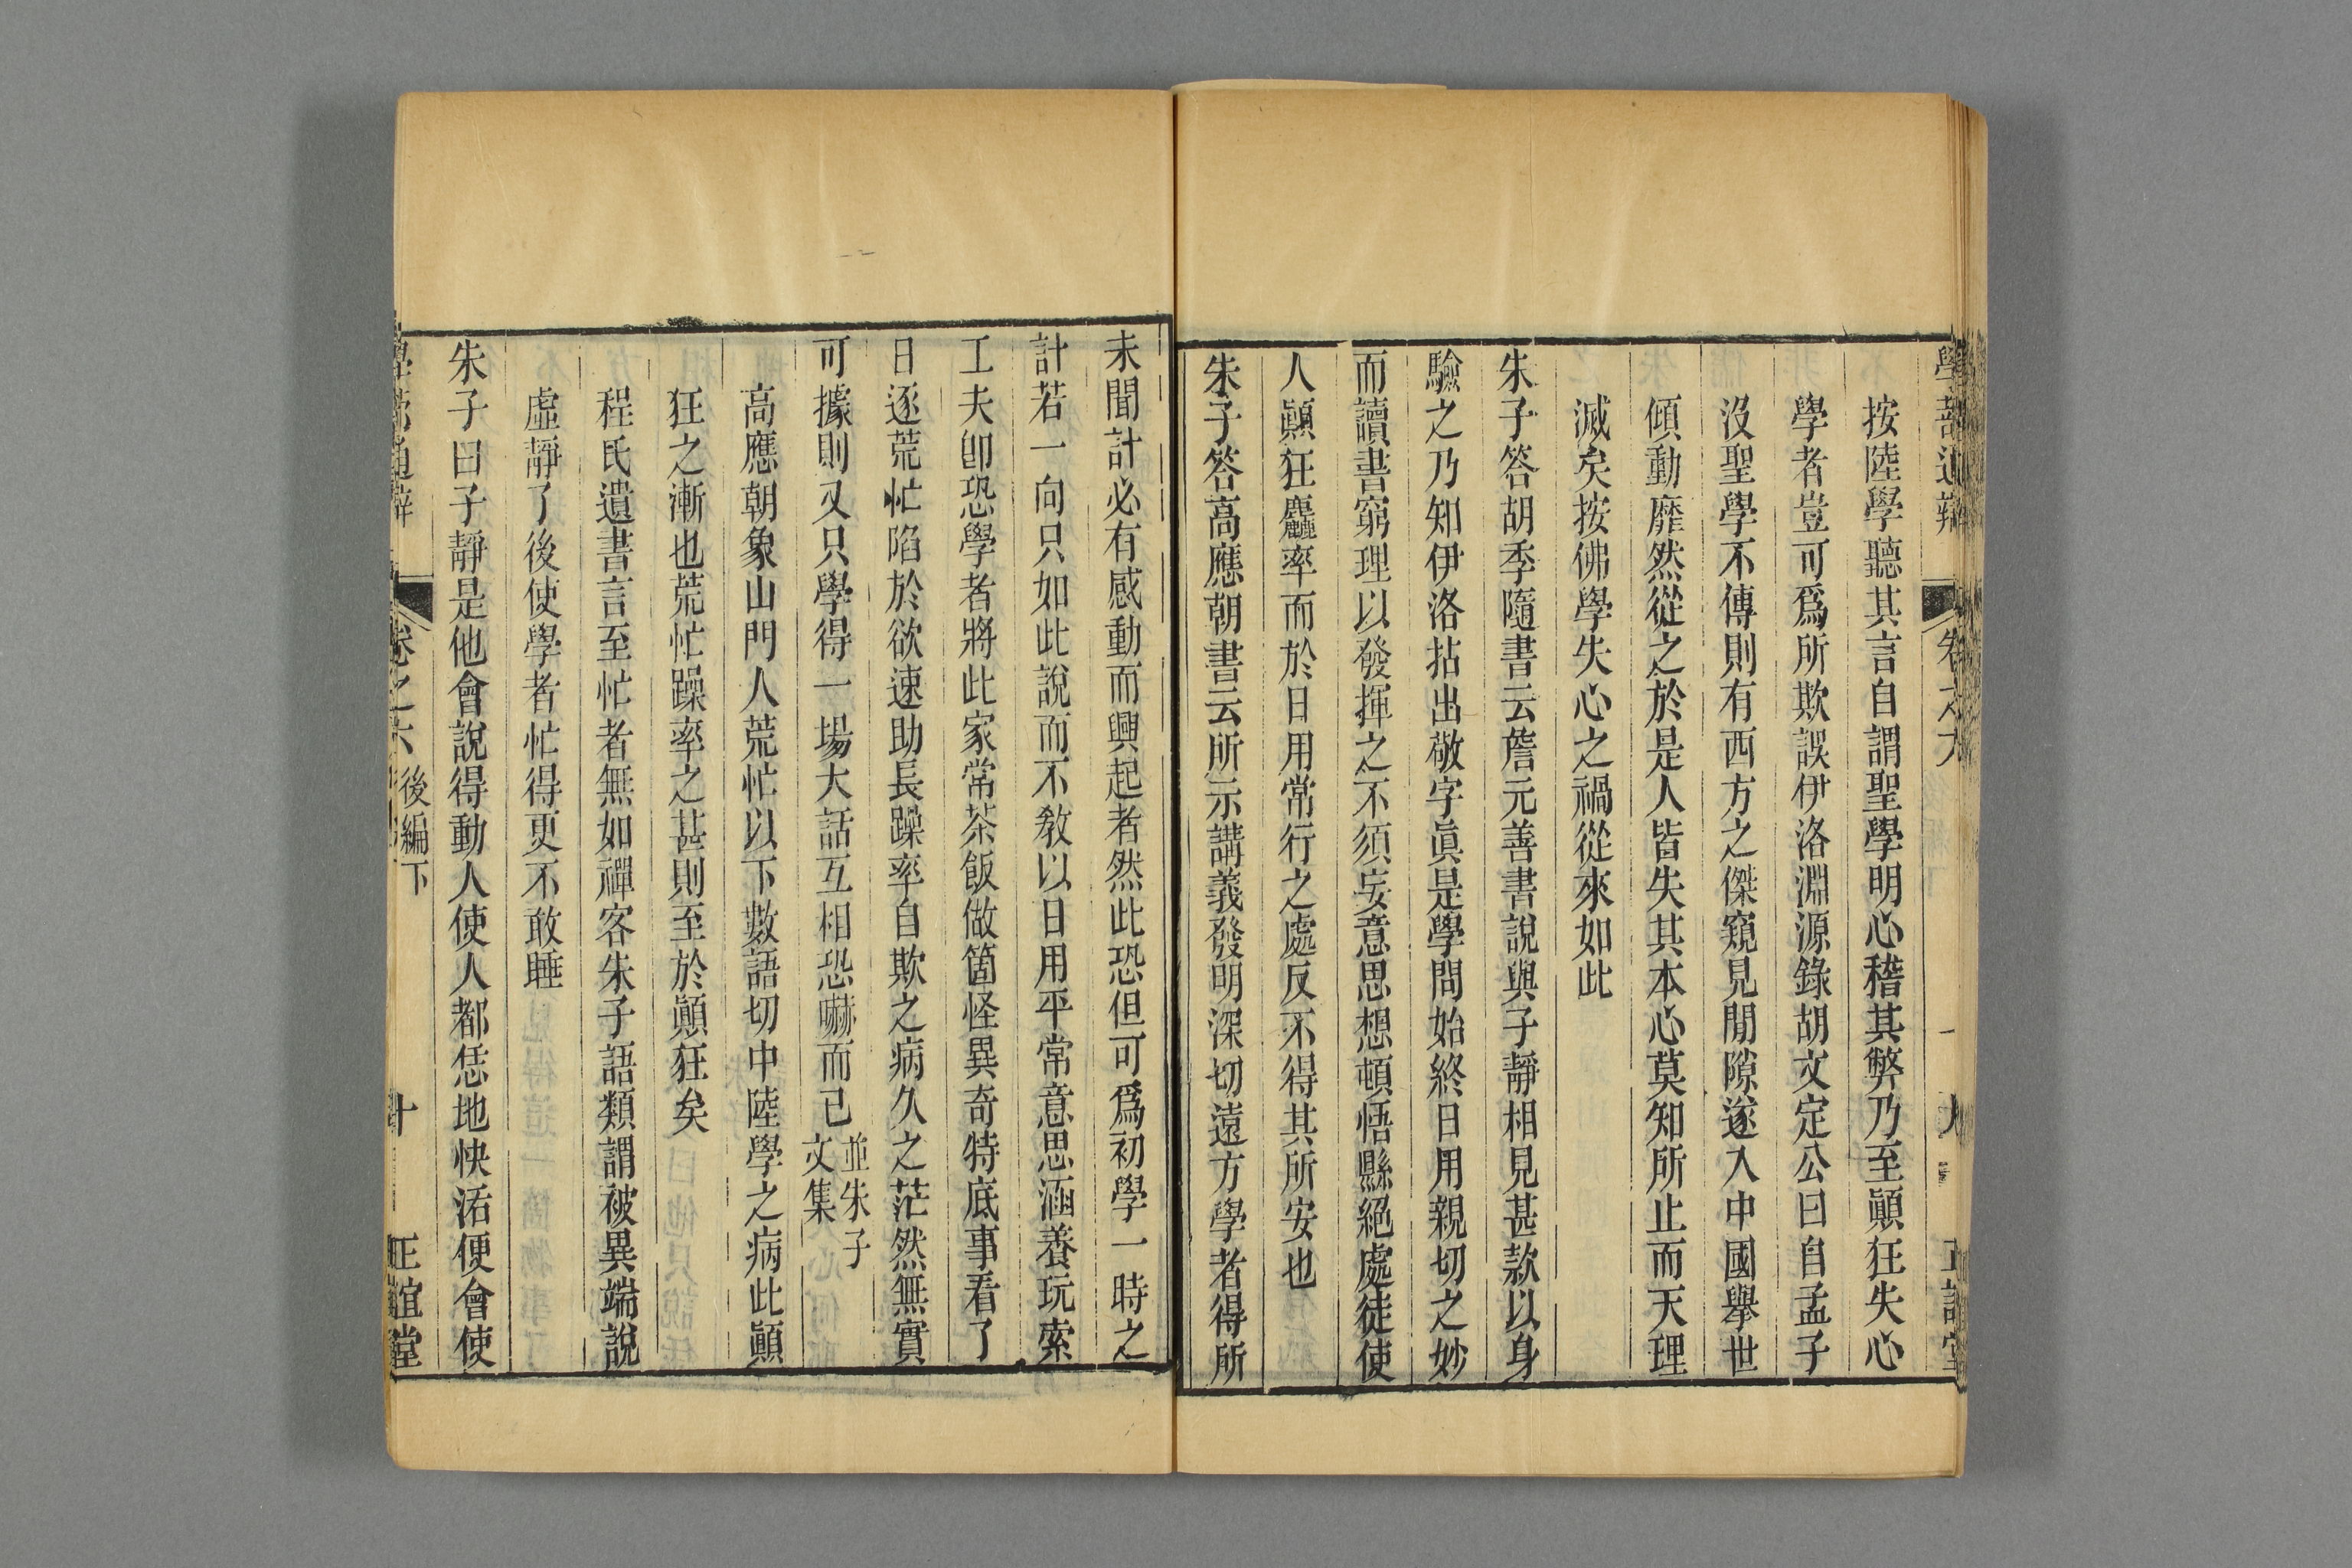 按陸學聽其言自謂聖學明心稽其弊乃至顚狂失心
學者豈可爲所欺誤伊洛淵源錄胡文定公曰自孟子
沒聖學不傳則有西方之傑窺見閒隙遂入中國舉世
傾動靡然從之於是人皆失其本心莫知所止而天理
滅矣按佛學失心之禍從來如此
朱子答胡季隨書云詹元善書說與子靜相見甚款以身
驗之乃知伊洛拈出敬字眞是學問始終日用親切之妙
而讀書窮理以發揮之不須妄意思想頓悟縣絕處徒使
人顚狂麤率而於日用常行之處反不得其所安也
朱子答高應朝書云所示講義發明深切遠方學者得所
未聞計必有感動而興起者然此恐但可爲初學一時之
計若一向只如此說而不敎以日用平常意思涵養玩索
工夫卽恐學者將此家常茶飯做箇怪異奇特底事看了
日逐荒忙陷於欲速助長躁率自欺之病久之茫然無實
可據則又只學得一場大話互相恐嚇而已
並朱子
文集
高應朝象山門人荒忙以下數語切中陸學之病此顚
狂之漸也荒忙躁率之甚則至於顚狂矣
程氏遺書言至忙者無如禪客朱子語類謂被異端說
虛靜了後使學者忙得更不敢睡
朱子曰子靜是他會說得動人使人都恁地快活便會使
學蔀通辯 卷之六 後編下 十 正誼堂